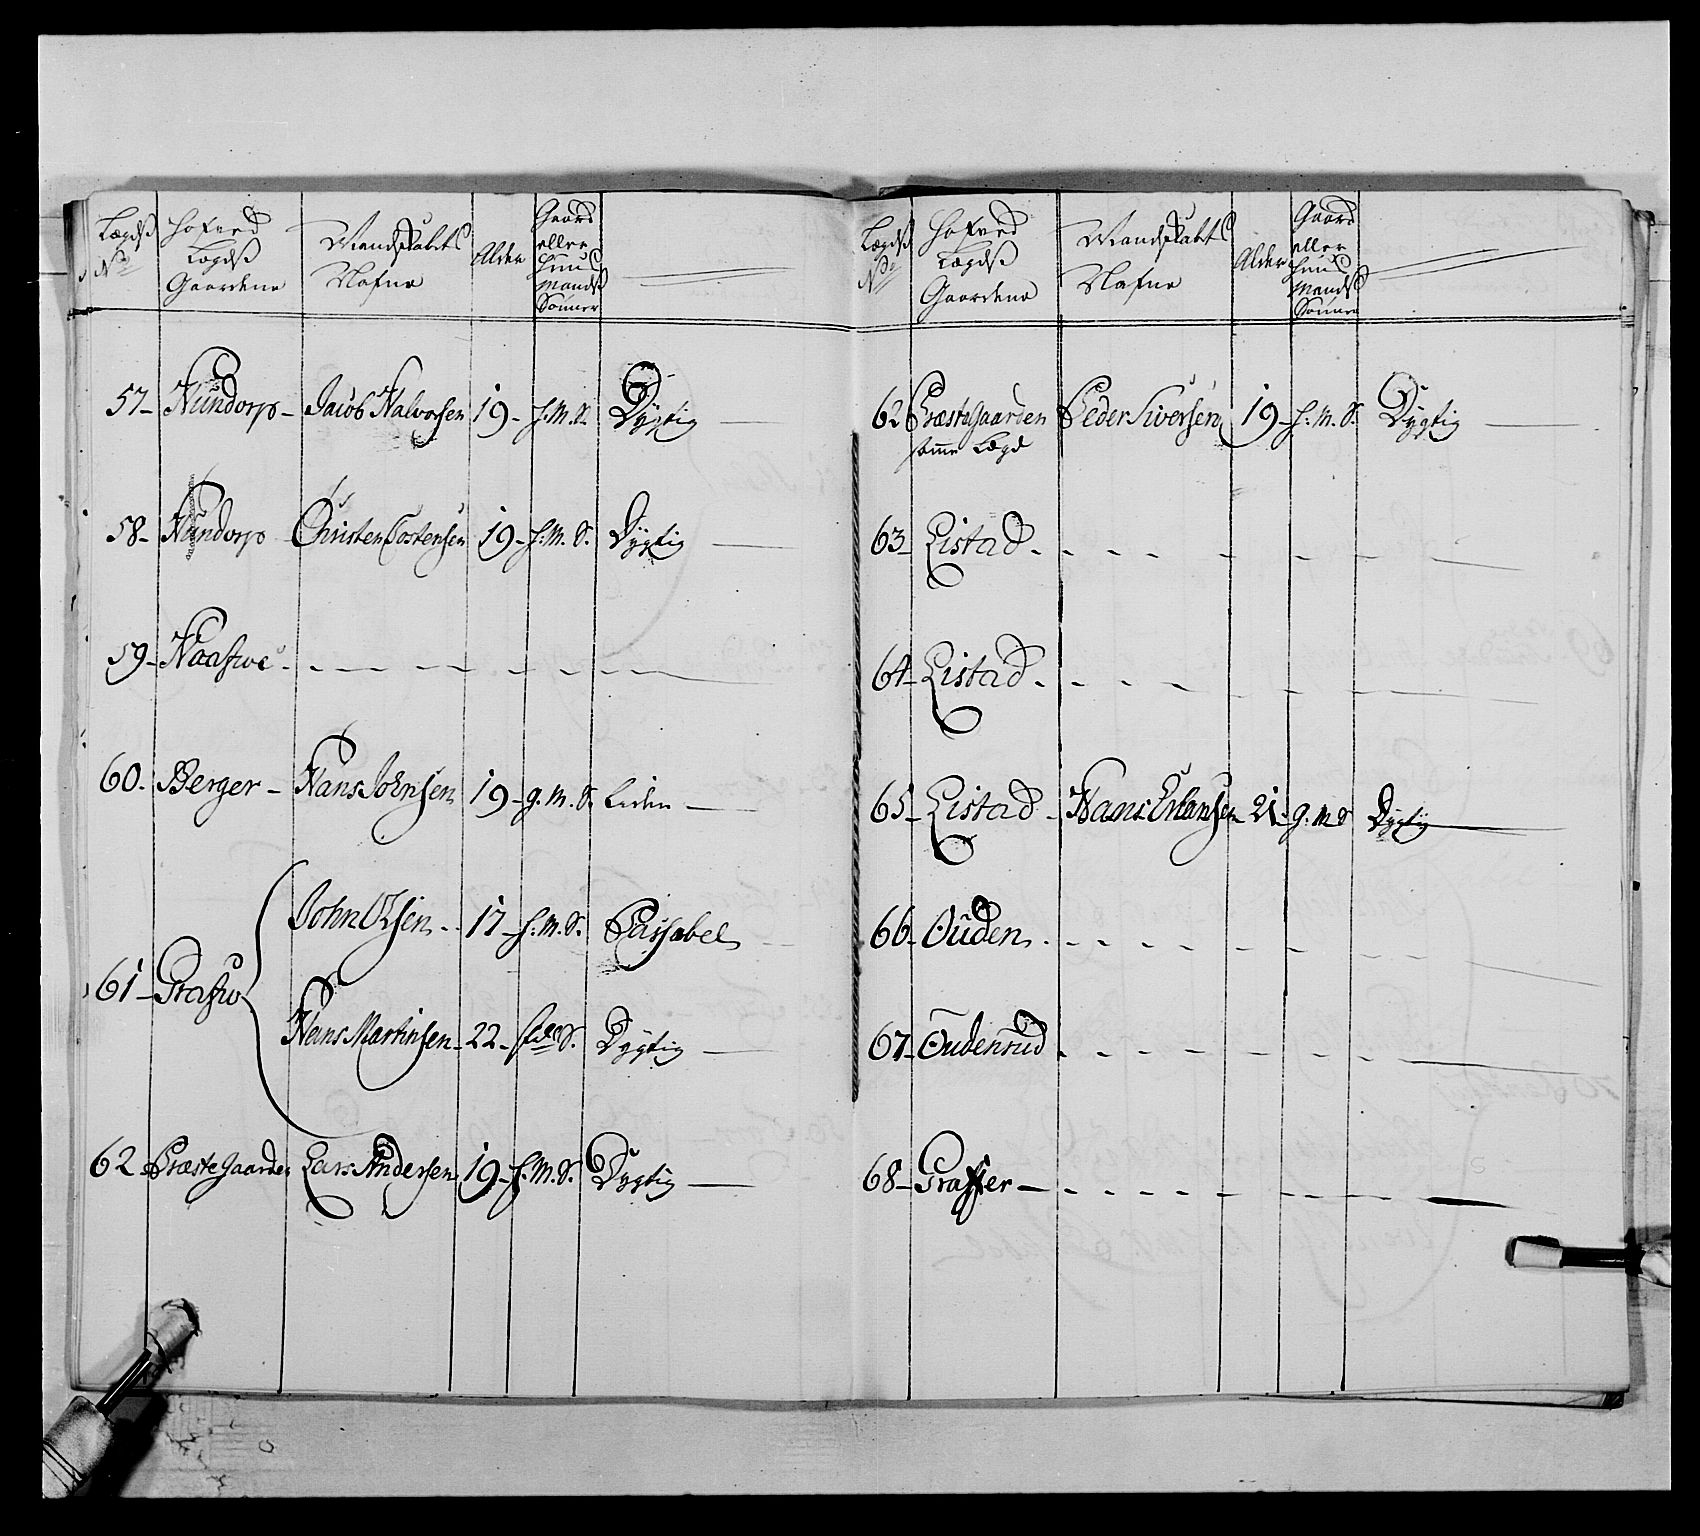 Lægds No
Hofved Lægds Gaardene
Mandskabets Nafne
Alder
Gaard eller Huus Mands Sønner
57- Hundorp- Jacob Halvorsen 19- H.M.S. Dygtig
58- Hundorp Christen Tostensen 19- H.M.S. Dygtig
59-
60- Berger- Hans Johnsen 19- g.M.S. Liden
61- John Olsen 17- H.M.S. Passabel
Hans Martinsen- 22- S. Dygtig
62 Præstegaarden Lars Andersen 19- H.M.S. Dygtig
Lægds No
Hofved Lægds Gaardene
Mandskabets Nafne
Alder
Gaard eller Huus Mands Sønner
62 Præstegaarden Peder Siversen 19- H.M.S. Dygtig
samme Lægd
63- Listad
64- Listad
65- Listad- Hans Erlansen 21- g.M.S Dygtig
66- Ouden
67- Oudensrud
68- Graffer-